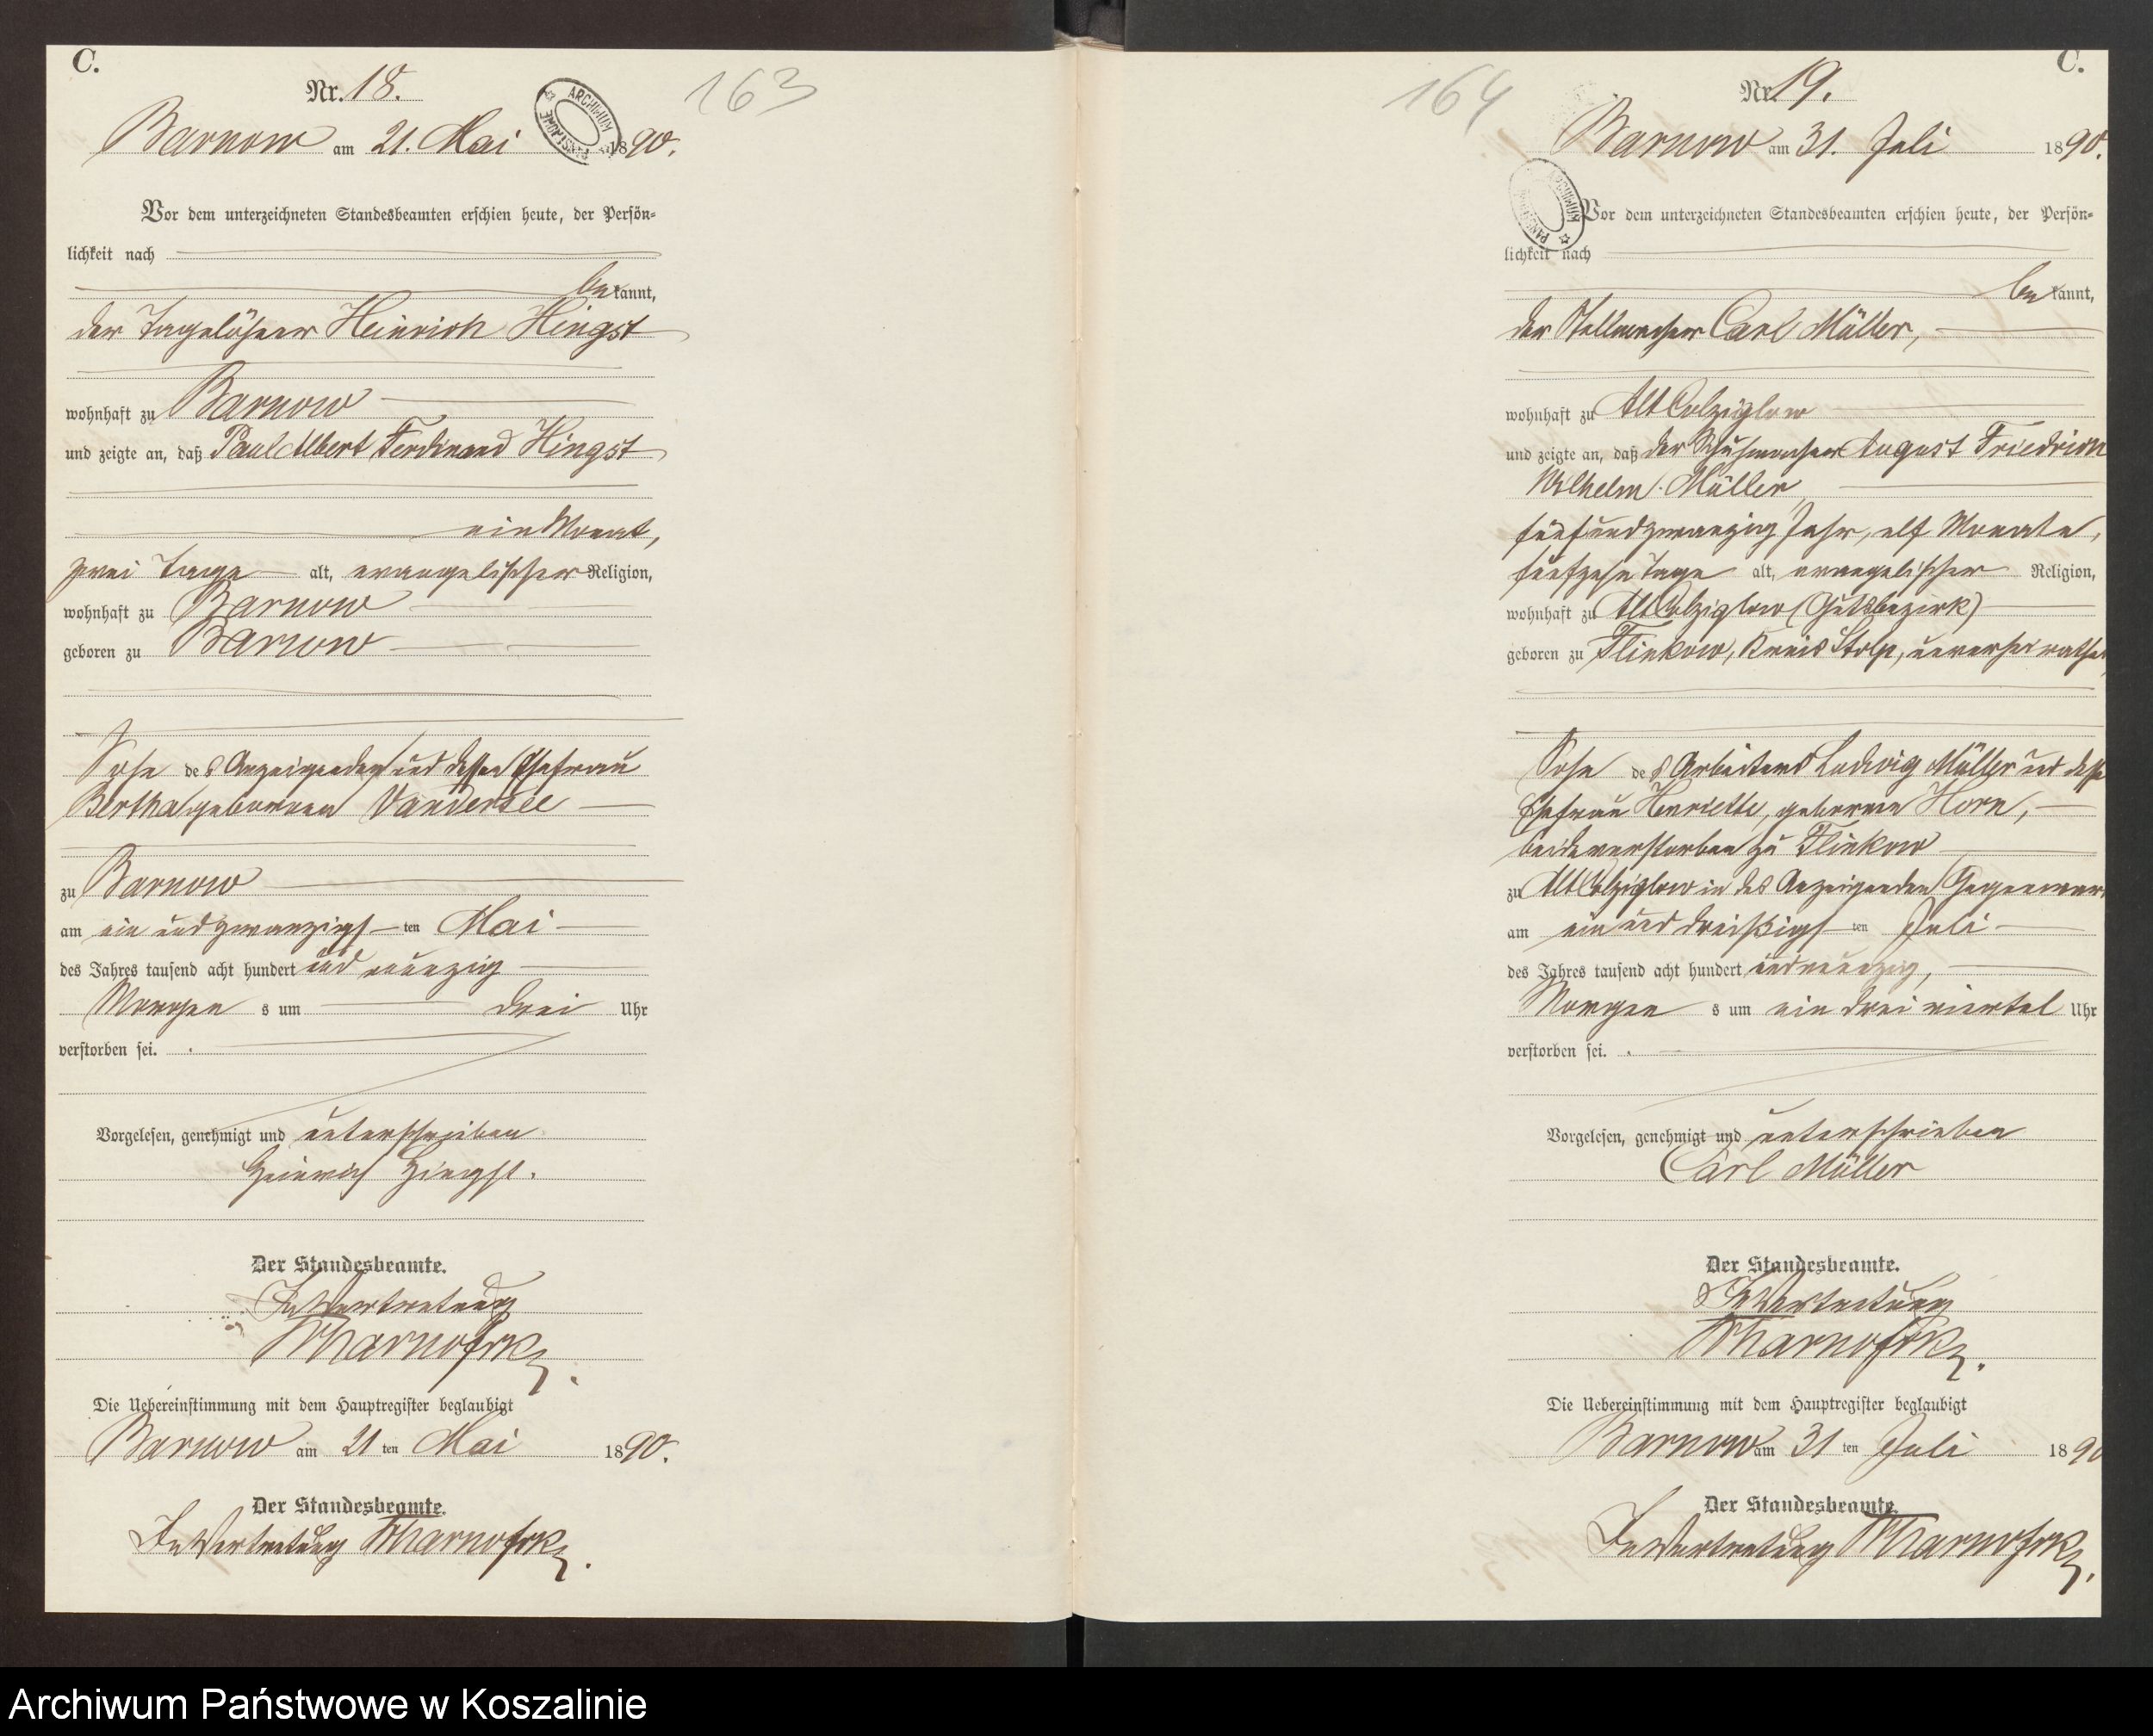 C.
Nr. 18.
163
ARCHIWUM PAŃSTWOWE
Barnow am 21. Mai 1890.
Vor dem unterzeichneten Standesbeamten erschien heute, der Persön=
lichkeit nach
be kannt,
der Tagelöhner Heinrich Hingst
wohnhaft zu Barnow
und zeigte an, daß Paul Albert Ferdinand Hingst
ein Monat,
zwei Tage alt, evangelischer Religion,
wohnhaft zu Barnow
geboren zu Barnow
Sohn des Anzeigenden und dessen Ehefrau
Bertha geborenen Vandersee
zu Barnow
am ein und zwanzigs ten Mai
des Jahres tausend acht hundert und neunzig
Morgen s um drei Uhr
verstorben sei.
Vorgelesen, genehmigt und unterschrieben
Heinrich Hingst.
Der Standesbeamte.
In Vertretung
Die Uebereinstimmung mit dem Hauptregister beglaubigt
Barnow am 21 ten Mai 1890.
Der Standesbeamte.
In Vertretung
C.
Nr. 19.
164
Barnow am 31. Juli 1890.
Vor dem unterzeichneten Standesbeamten erschien heute, der Persön=
lichkeit nach
be kannt,
der Stellmacher Carl Müller,
wohnhaft zu Alt Colziglow
und zeigte an, daß der Schuhmacher August Friedrich
Wilhelm Müller
fünfundzwanzig Jahr, elf Monate,
fünfzehn Tage alt, evangelischer Religion,
wohnhaft zu Alt Colziglow (Gutsbezirk)
geboren zu Flinkow, Kreis Stolp, unverheirathet
Sohn des Arbeiters Ludwig Müller und dessen
Ehefrau Henriette, geborene Horn,
beide verstorben zu Flinkow
zu Alt Colziglow in des Anzeigenden Gegenwart
am ein und dreißigs ten Juli
des Jahres tausend acht hundert und neunzig,
Morgen s um ein drei viertel Uhr
verstorben sei.
Vorgelesen, genehmigt und unterschrieben
Carl Müller
Der Standesbeamte.
In Vertretung
Die Uebereinstimmung mit dem Hauptregister beglaubigt
Barnow am 31 ten Juli 1890
Der Standesbeamte.
In Vertretung
Archiwum Państwowe w Koszalinie